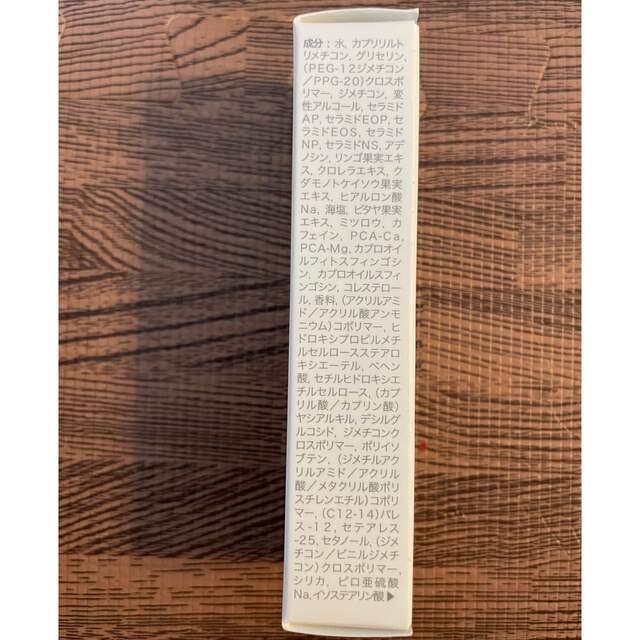 成分：水, カプリリルト
リメチコン, グリセリン,
(PEG-12ジメチコン
／PPG-20)クロスポ
リマー, ジメチコン, 変
性アルコール, セラミド
AP, セラミドEOP, セ
ラミドEOS, セラミド
NP, セラミドNS, アデ
ノシン, リンゴ果実エキ
ス, クロレラエキス, ク
ダモノトケイソウ果実
エキス, ヒアルロン酸
Na, 海塩, ピタヤ果実
エキス, ミツロウ, カ
フェイン, PCA-Ca,
PCA-Mg, カプロオイ
ルフィトスフィンゴシ
ン, カプロオイルスフィ
ンゴシン, コレステロー
ル, 香料, (アクリルアミ
ド／アクリル酸アンモ
ニウム)コポリマー, ヒ
ドロキシプロピルメチ
ルセルロースステアロ
キシエーテル, ベヘン
酸, セチルヒドロキシエ
チルセルロース, (カプ
リル酸／カプリン酸)
ヤシアルキル, デシルグ
ルコシド, ジメチコンク
ロスポリマー, ポリイソ
ブテン, (ジメチルアク
リルアミド／アクリル
酸／メタクリル酸ポリ
スチレンエチル)コポリ
マー, (C12-14)パレ
ス-12, セテアレス
-25, セタノール, (ジメ
チコン／ビニルジメチ
コン)クロスポリマー,
シリカ, ピロ亜硫酸
Na, イソステアリン酸▶